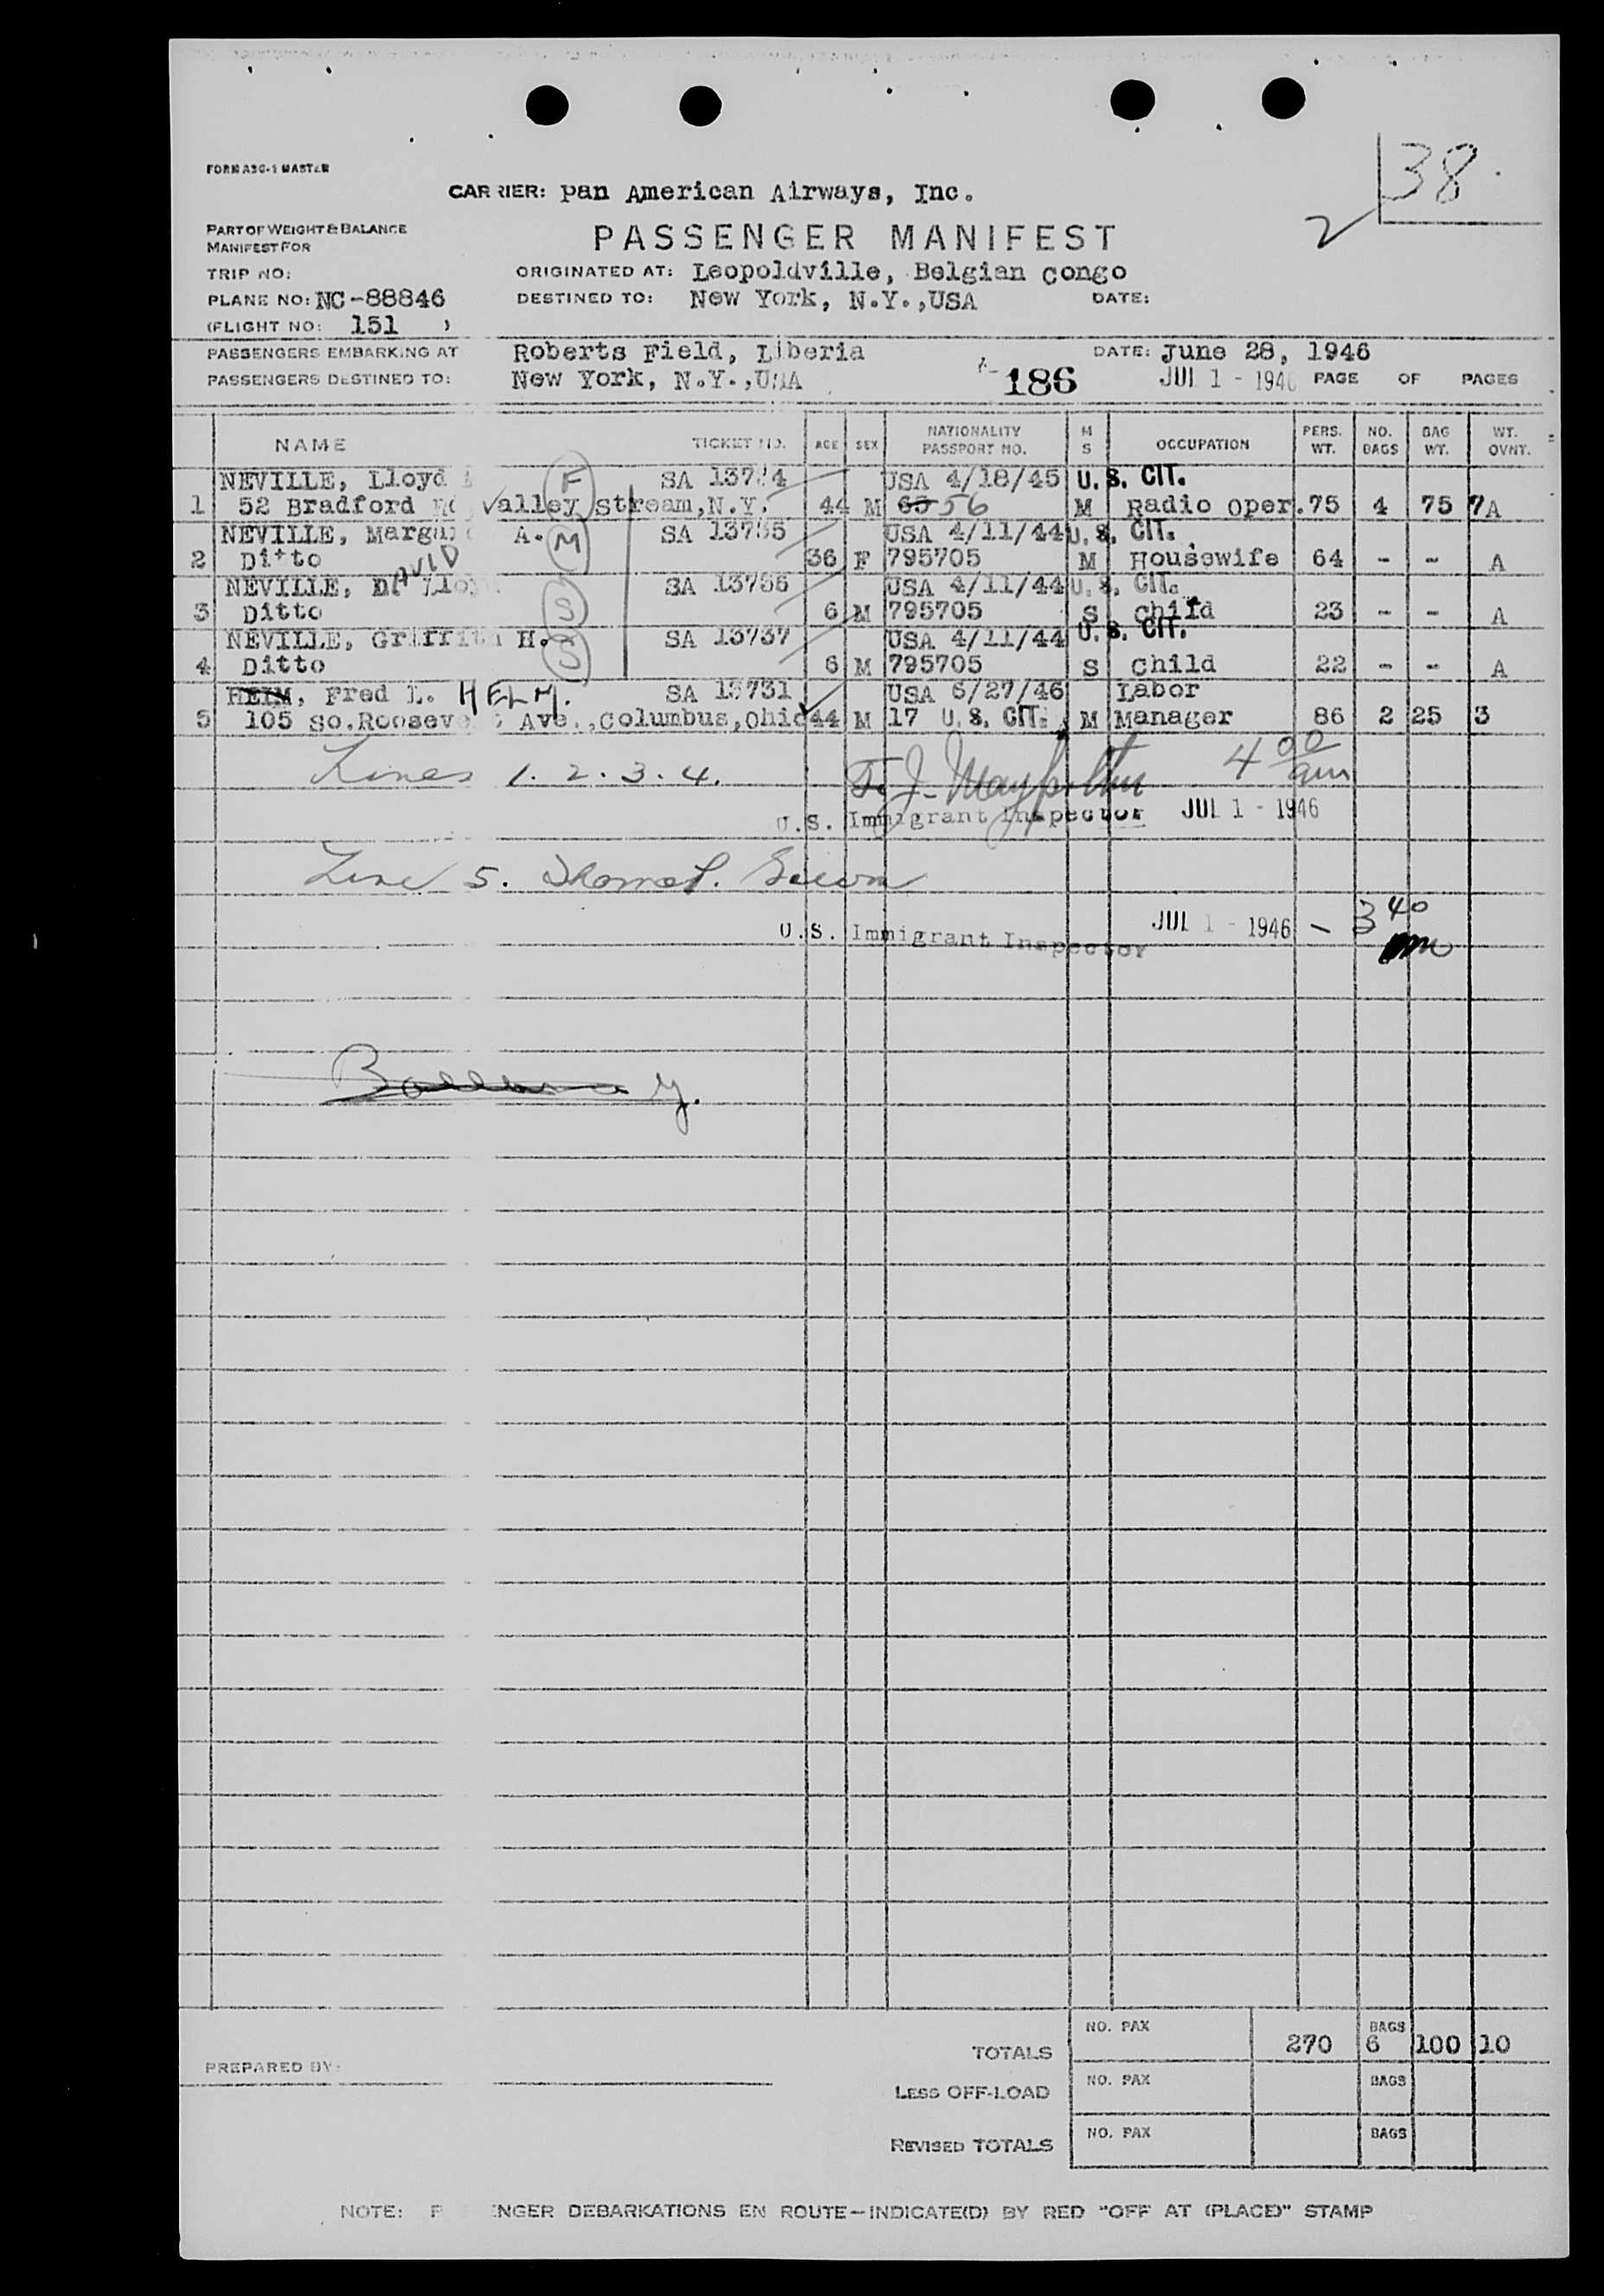 FORM ASG-1 MASTER
38
CARRIER: Pan American Airways, Inc.
2
PART OF WEIGHT & BALANCE
MANIFEST FOR
PASSENGER MANIFEST
TRIP NO:
ORIGINATED AT: Leopoldville, Belgian Congo
PLANE NO: NC-88846
DESTINED TO: New York, N.Y.,USA DATE:
(FLIGHT NO: 151 )
PASSENGERS EMBARKING AT Roberts Field, Liberia DATE: June 28, 1946
PASSENGERS DESTINED TO: New York, N.Y.,USA 186 JUL 1 - 1946 PAGE OF PAGES
NAME TICKET NO. AGE SEX NATIONALITY PASSPORT NO. M S OCCUPATION PERS. WT. NO. BAGS BAG WT. WT. OVNT.
NEVILLE, Lloyd F SA 13734 USA 4/18/45 U. S. CIT.
1 52 Bradford Valley Stream,N.Y. 44 M 56 M Radio Oper. 75 4 75 7A
NEVILLE, A. M SA 13735 USA 4/11/44 U. S. CIT.
2 Ditto 36 F 795705 M Housewife 64 - - A
NEVILLE, DAVID S SA 13736 USA 4/11/44 U. S. CIT.
3 Ditto 6 M 795705 S Child 23 - - A
NEVILLE, Griffith H. S SA 13737 USA 4/11/44 U. S. CIT.
4 Ditto 6 M 795705 S Child 22 - - A
HEIM, Fred L. HELM. SA 13731 USA 6/27/46 Labor
5 105 So.Roosevelt Ave.,Columbus,Ohio 44 M 17 U. S. CIT. M Manager 86 2 25 3
Lines 1. 2. 3. 4. 4 00 am
U.S. Immigrant Inspector JUL 1 - 1946
Line 5.
U.S. Immigrant Inspector JUL 1 - 1946 - 3 40
TOTALS NO. PAX 270 BAGS 6 100 10
PREPARED BY:
LESS OFF-LOAD NO. PAX BAGS
REVISED TOTALS NO. PAX BAGS
NOTE: P ENGER DEBARKATIONS EN ROUTE—INDICATE(D) BY RED "OFF AT (PLACE)" STAMP